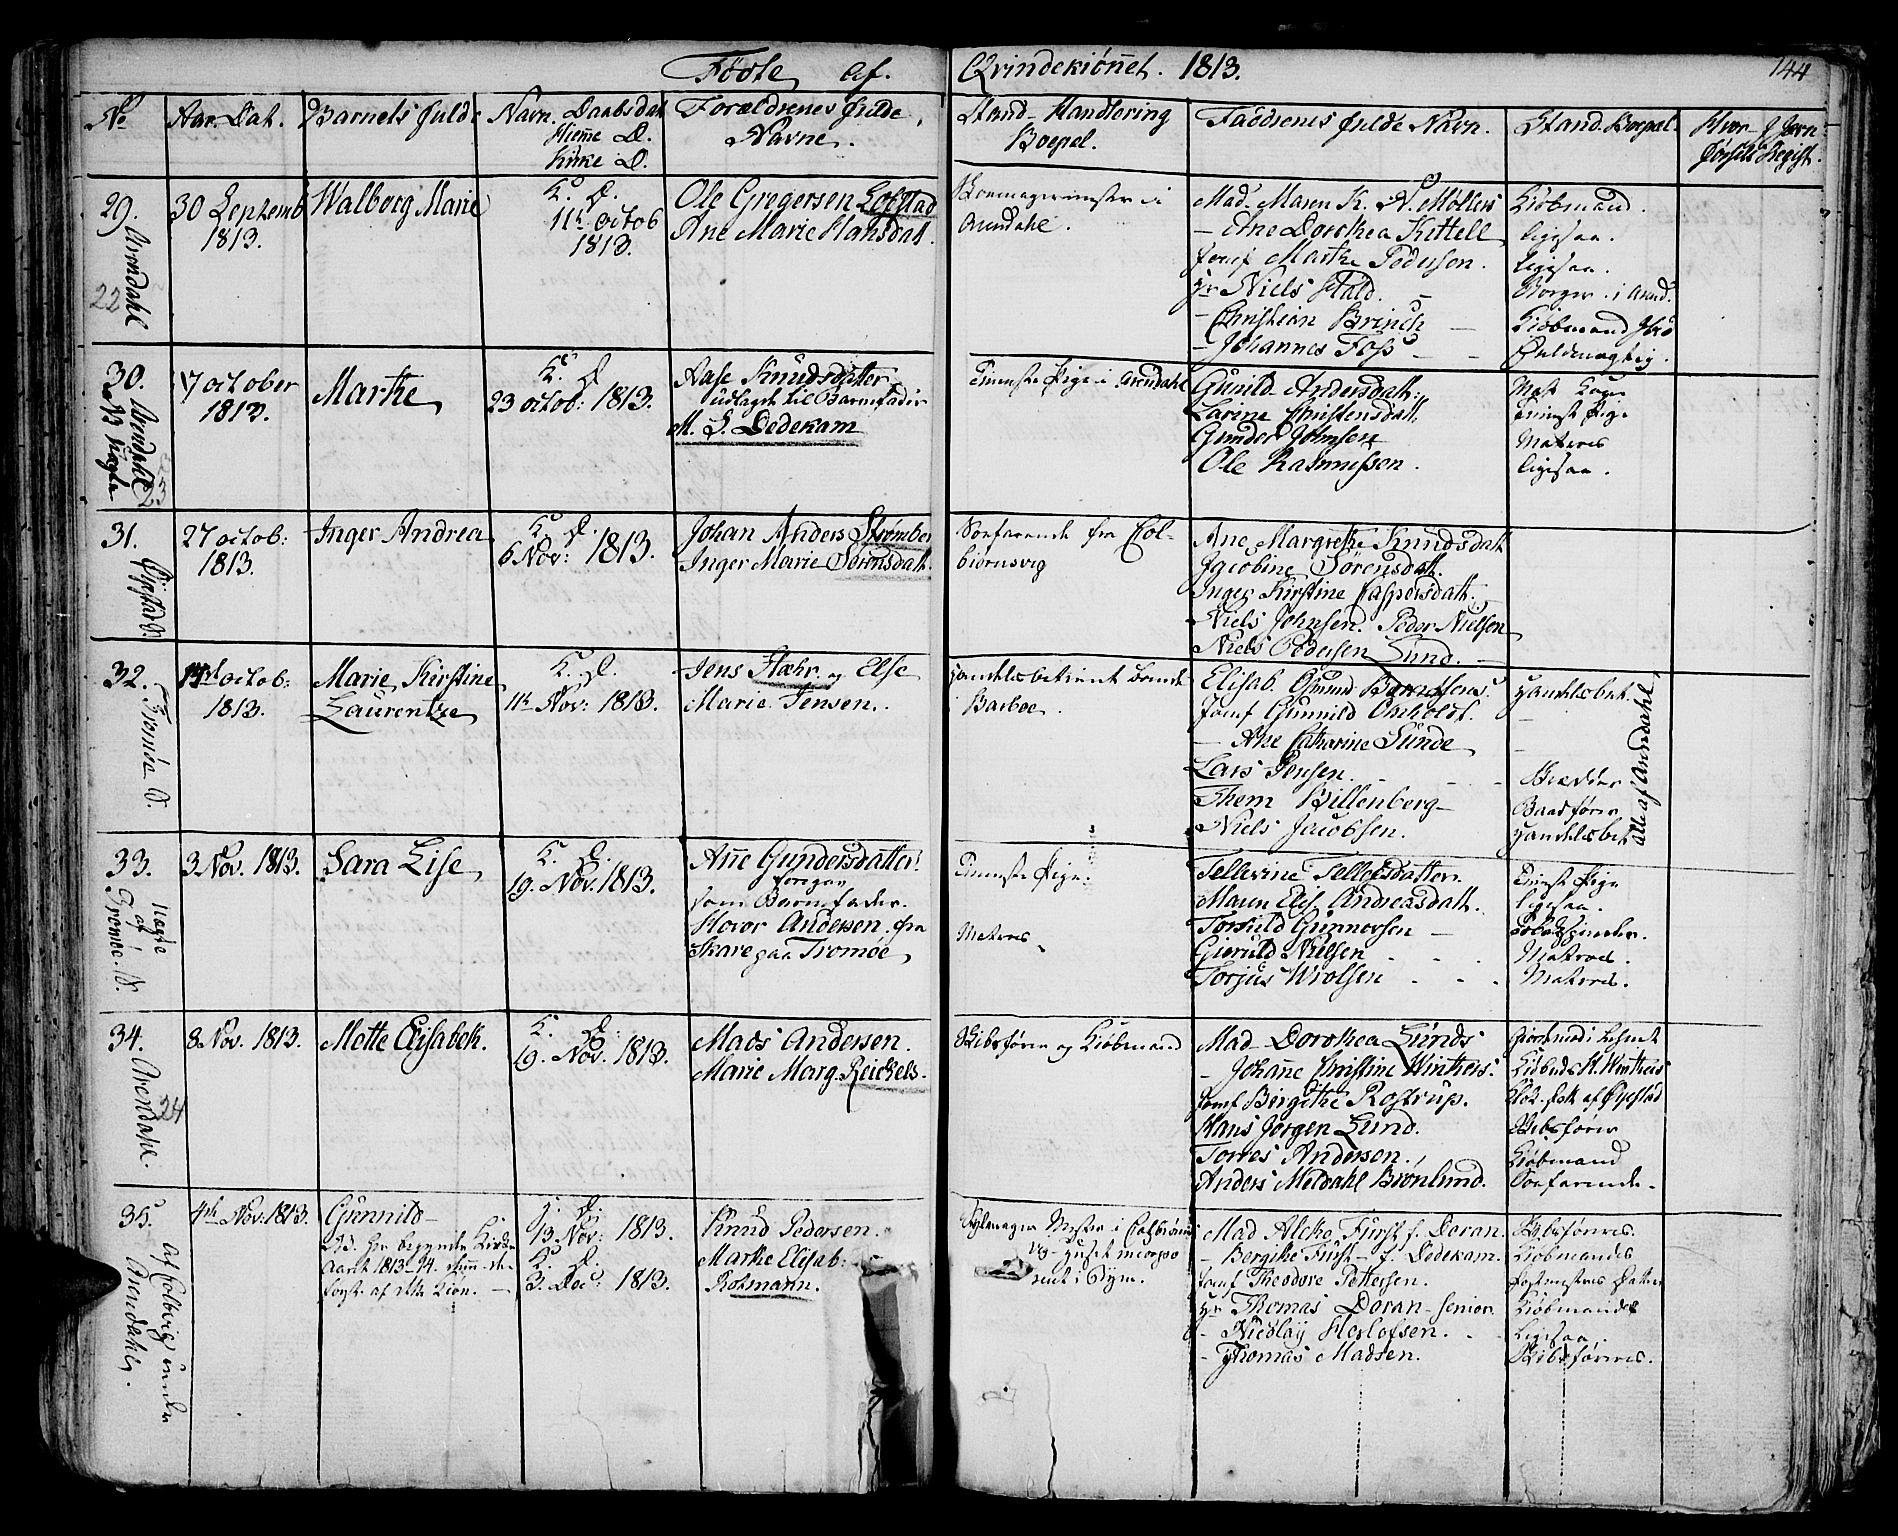 Fødte af. Qvindekiønnet. 1813.
144
No
Aar. Dat.
Barnets fulde Navn.
Daabsdat
Hieme D.
Kirke D.
Forældrenes fulde
Navne.
Stand - Handtering
Boepel.
Faddrenes fulde Navn.
Stand. Boepæl.
29. Arendahl
22
30 Septemb
1813.
Walborg Marie
K. D.
11te octob
1813.
Ole Gregersen Lofstad
Ane Marie Hansdatt.
Skoemagermester i
Arendahl.
Mad. Maren K. N. Møllers
- Ane Dorothea Kettell
Jomf Marthe Pedersen.
Hr Niels Stald.
- Christian Brinch
- Johannes Foss
Kiøbmand.
ligesaa.
ligesaa.
Borger i Arend.
Kiøbmand
Fuldmægtig.
30. Arendahl
NB Uægte
23
17 october
1813.
Marthe
K. D.
23 octob: 1813.
Aase Knudsdatter
udlagde til Barnefader
M. S. Dedekam
Tieneste Pige i Arendahl
Gunild Andersdatt.
Larine Christensdatt.
Gunder Johnsen
Ole Rasmussen.
Tienest Pige
Matros
ligesaa.
31. Øyestad S.
27 octob:
1813.
Inger Andrea
K. D.
6 Nov: 1813.
Johan Anders Strømber
Inger Marie Sørensdatt.
Soefarende fra Col-
biørnsvig
Ane Margrethe Knudsdatt
Jacobine Sørensdatt.
Inger Kirstine Caspersdatt.
Niels Johnsen. Peder Nielsen
Niels Pedersen Lund.
32. Tromøe S.
octob:
1813.
Marie Kirstine
Laurentze
K. D.
11te Nov: 1813.
Jens Flæhr og Else
Marie Jensen.
Handelsbetient
i Barboe.
Elisab. Osmund Berentsens
Jomf Gunnild Omholdt.
- Ane Catharine Sunde
Lars Jensen.
Them Billenberg
Niels Jacobsen.
Handelsbet.
Baadfører
Handelsbet
alle af Arendahl
33. Uægte
af
Tromøe. S.
3 Nov. 1813.
Sara Lise
K. D.
19. Nov. 1813.
Anne Gundersdatter
foregav
som Barnefader.
Hovor Andersen. fra
Skare paa Tromøe
Tieneste Pige.
Matros
Tellerine Tellefsdatter.
Maren Elis. Andreasdatt.
Torkild Gunnersen
Gieruld Nielsen
Torjus Wrolsen
Tienest Pige
ligesaa.
Matros.
Matros.
34. Arendahl.
24
8 Nov. 1813.
Mette Elisabeth.
K. D.
19. Nov. 1813.
Mads Andersen.
Marie Marg. Reichels.
Skibsfører og Kiøbmand
Mad - Dorothea Lunds
- Johanne Christine Winthers.
Jomf Birgithe Rostrup.
Hans Jørgen Lund.
Torres Andersen.
Anders Meldahl Brønlund.
Skibsfører
Kiøbmand
Soefarende.
35. af Colbiørnsvig under
Arendahl.
4de Nov: 1813.
Gunnild
NB. her begynder Kirke
Aaret 1813-14.
K. D.
13 Nov. 1813
K. D.
3. Dec: 1813.
Knud Pedersen.
Marthe Elisab:
Rotmann.
Mester i Colbiørns
vig
Mad Alethe Fürst f. Doran.
- Bergithe Fürst - f. Dedekam.
Jomf Theodore Pettersen.
Hr Thomas Doran - senior.
- Nicolaÿ Herlofsen.
- Thomas Madsen.
Skibsførers.
Kiøbmandes
Postmesters Datter
Kiøbmandes
Ligesaa.
Skibsførers.